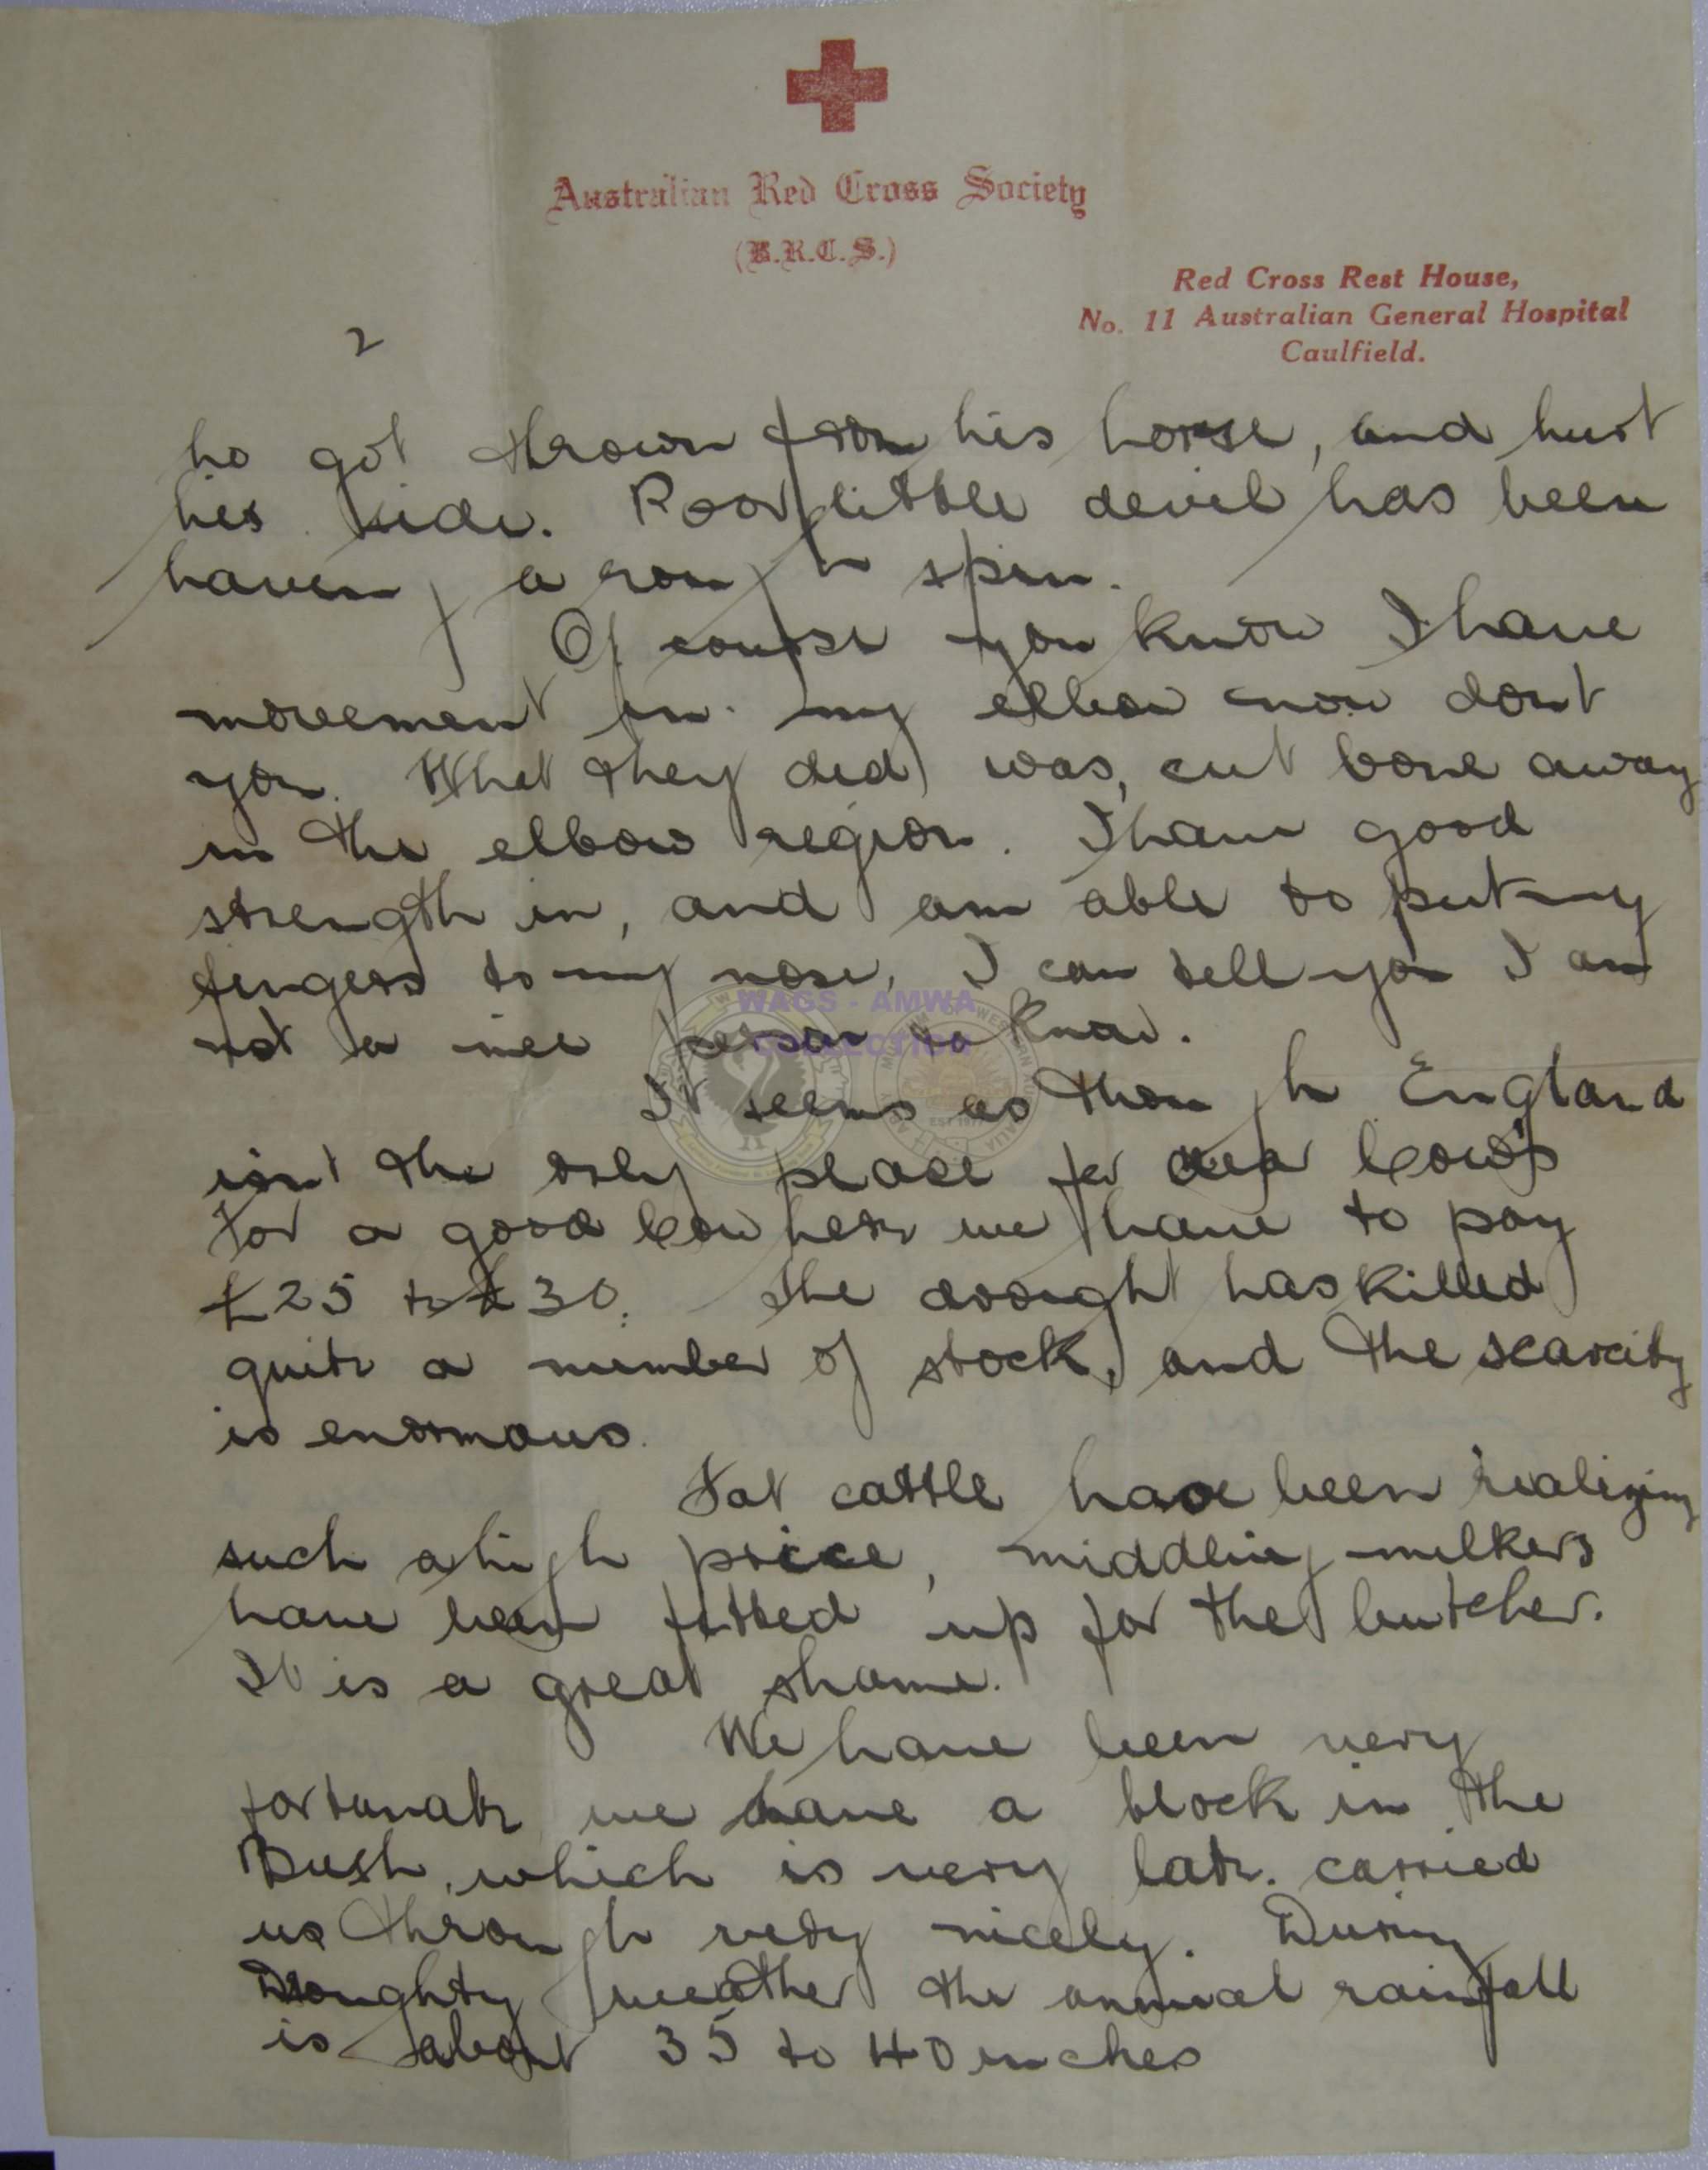 Australian Red Cross Society
(B.R.C.S.)
Red Cross Rest House,
No. 11 Australian General Hospital
Caulfield.
2
he got thrown from his horse, and hurt
his side. Poor little devil has been
having a rough spin.
Of course you know I have
movement in my elbow now dont
you. What they did was, cut bone away
in the elbow region. I have good
strength in, and am able to put my
fingers to my nose, I can tell you I am
not a nice person to know.
It seems as though England
isn't the only place for dear Cows
For a good Cow here we have to pay
£25 to £30. The drought has killed
quite a number of stock, and the scarcity
is enormous.
Fat cattle have been realizing
such a high price, middling milkers
have been fatted up for the butcher.
It is a great shame.
We have been very
fortunate we have a block in the
Bush, which is very late. carried
us through very nicely. During
Droughty weather the annual rainfall
is about 35 to 40 inches
WAGS - AMWA
COLLECTION